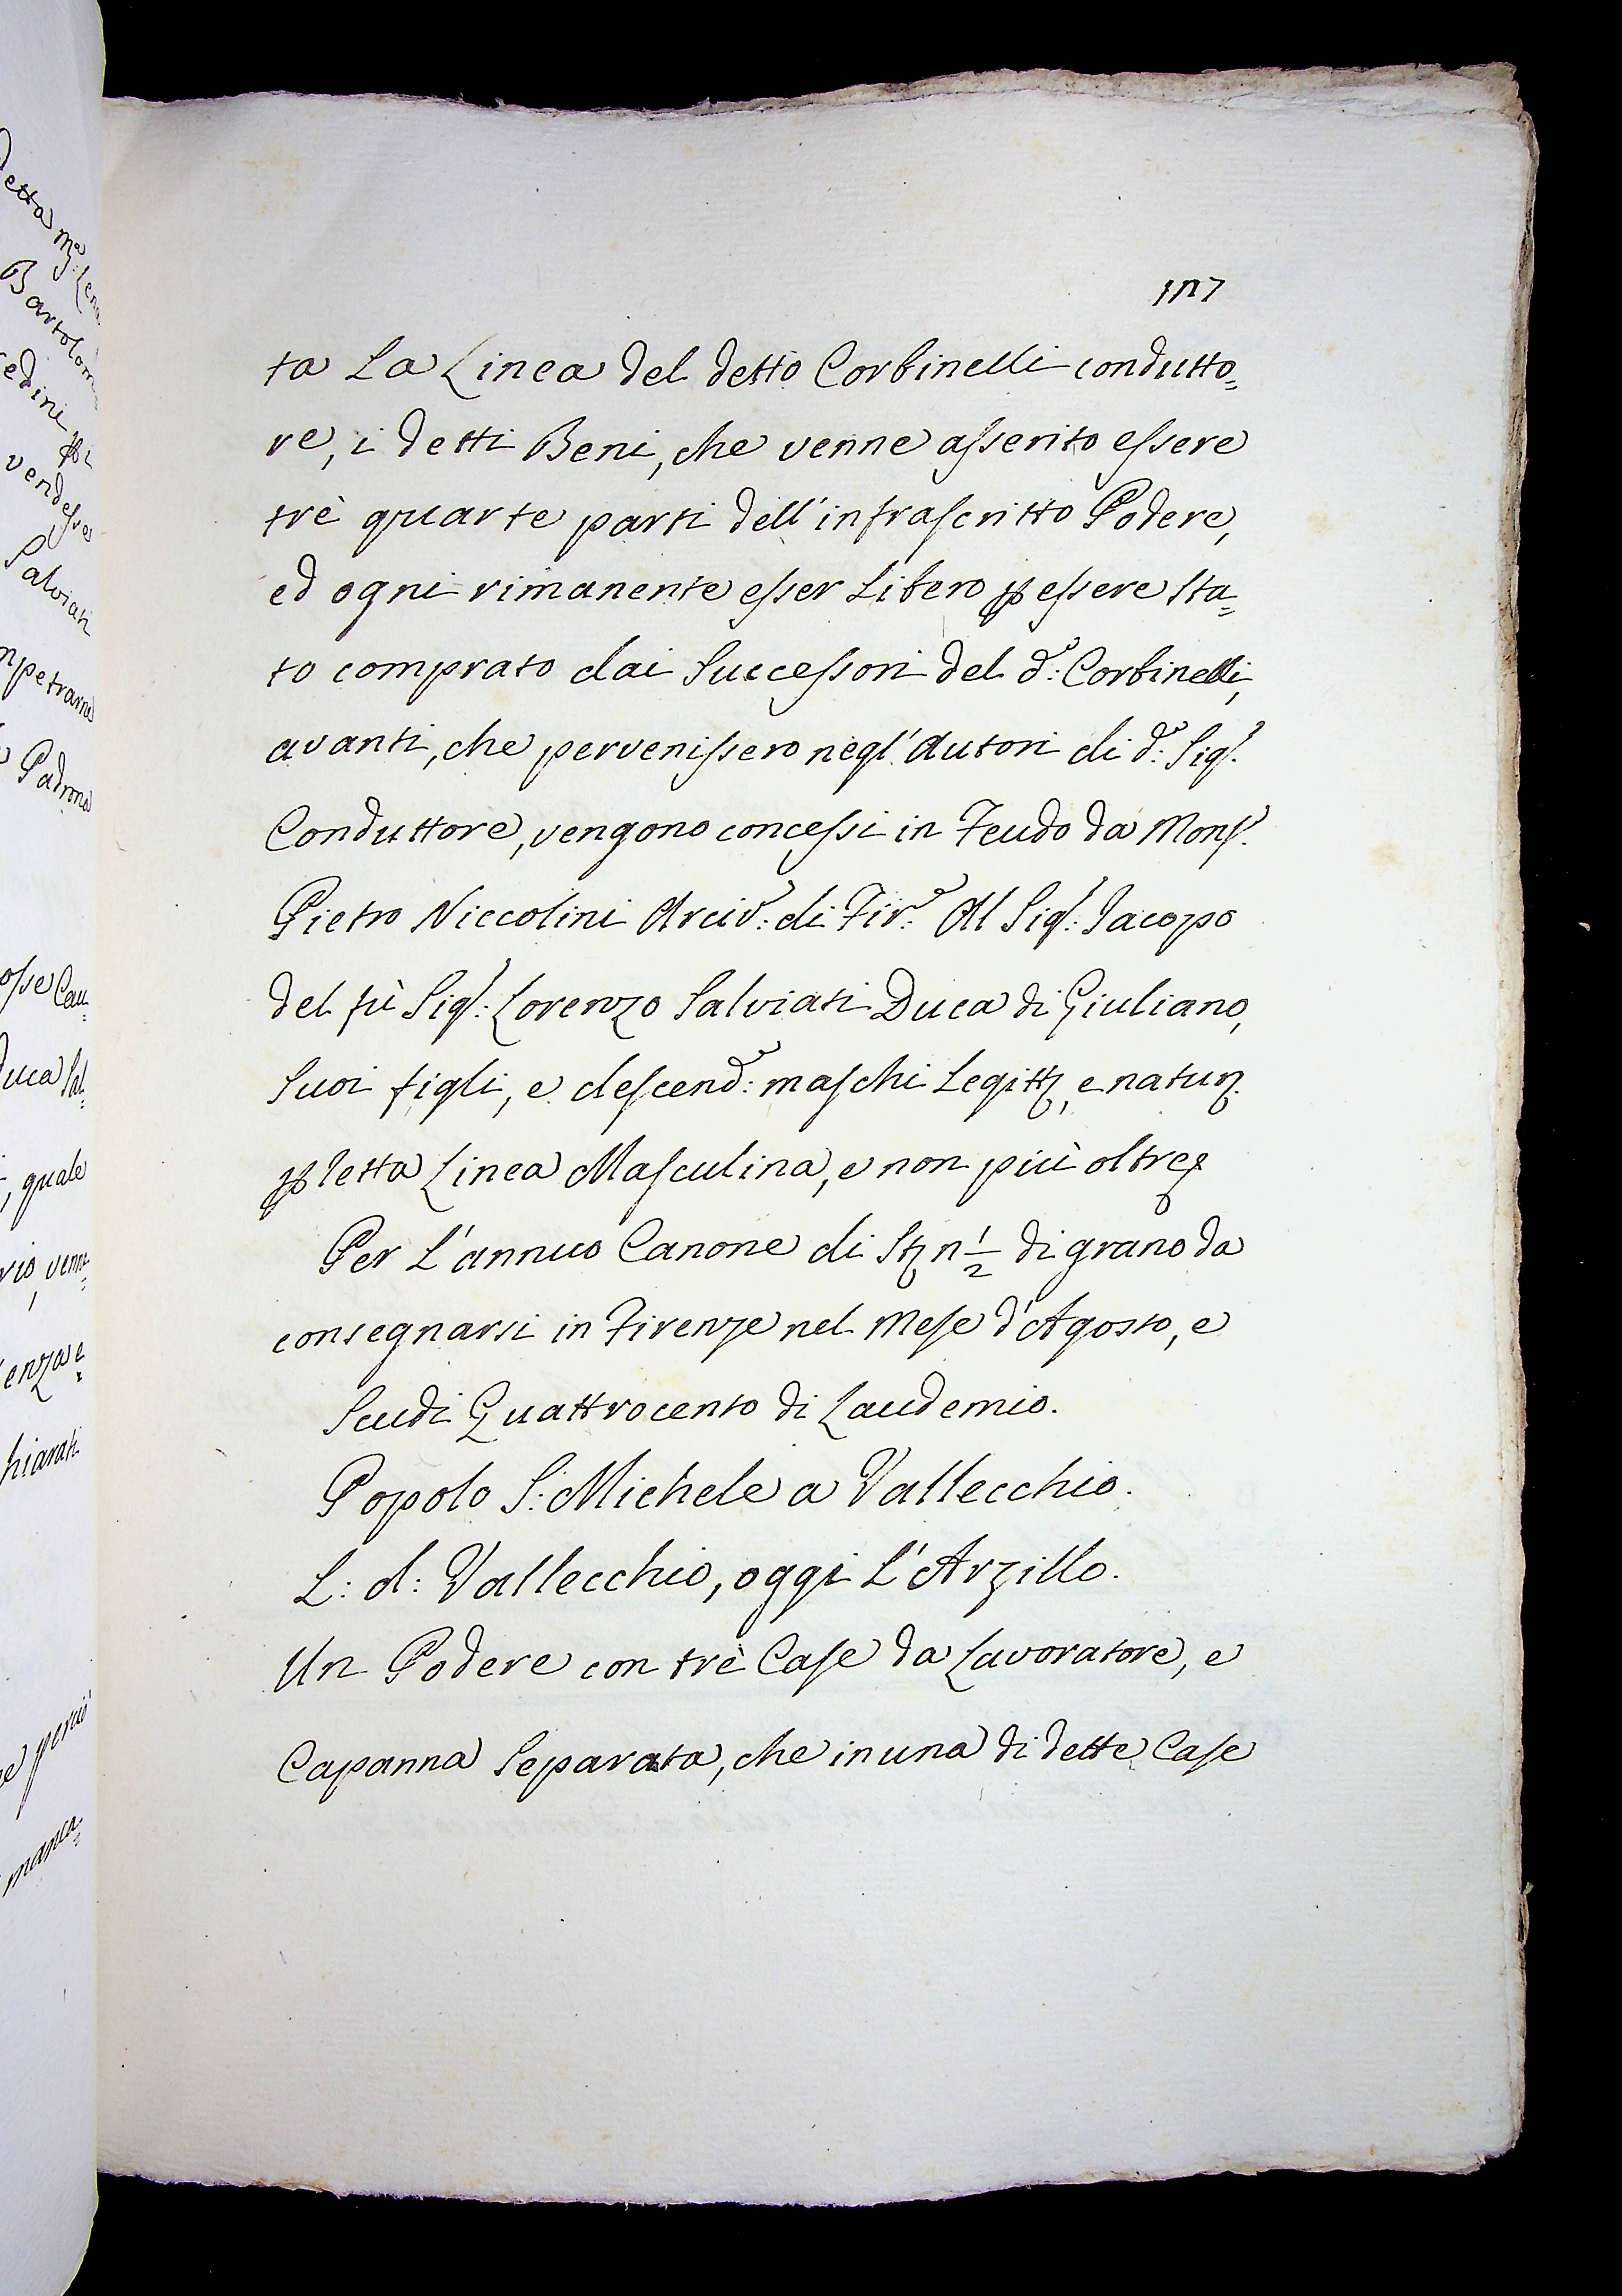 ta La Linea del detto Corbinelli condutto=
re, i detti Beni, che venne asserito essere
trè quarte parti dell'infrascritto Podere,
ed ogni rimanente esser Libero ꝑ essere Sta=
to comprato dai Successori del d.º: Corbinelli,
avanti, che pervenissero negl'Autori di d.º: Sig.r
Conduttore, vengono concessi in Feudo da Mons.r
Pietro Niccolini Arciv.º: di Fir.e Al Sig.r: Jacopo
del fù Sig.r: Lorenzo Salviati Duca di Giuliano,
Suoi figli, e descend.i: maschi Legitt, e natur.
ꝑ retta Linea Masculina, e non più oltre
Per L'annuo Canone di St n 1/2 di grano da
consegnarsi in Firenze nel Mese d'Agosto, e
Scudi Quattrocento di Laudemio.
Popolo S: Michele a Vallecchio.
L: d: Vallecchio, oggi L'Arzillo.
Un Podere con trè Case da Lavoratore, e
Capanna Separata, che in una di dette Case
detta
Bartolom
vendesse
Salviati
Padrone
Duca Sal=
, quale